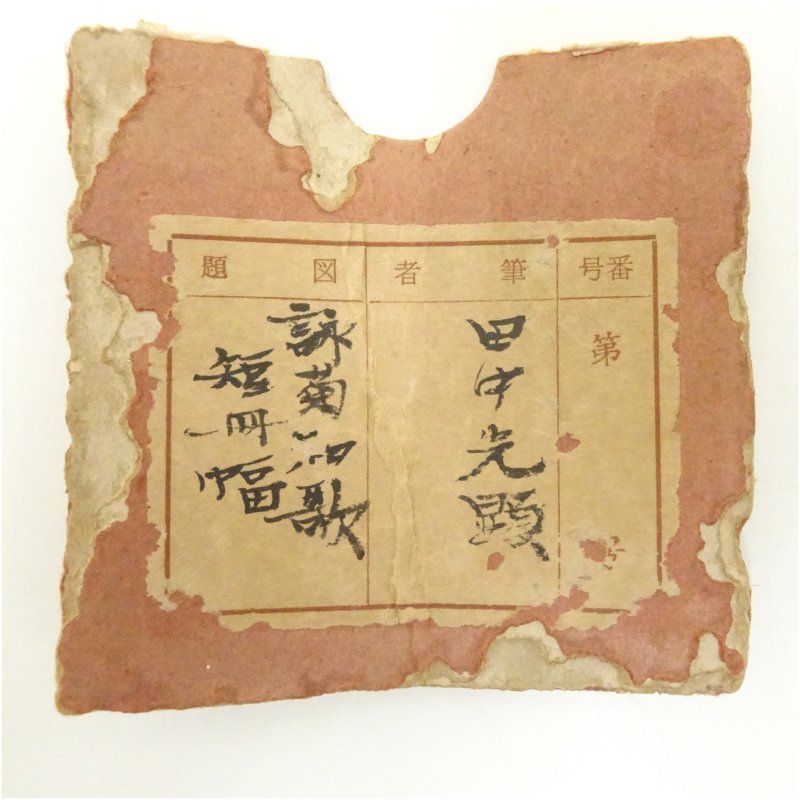 番号
第
号
筆者
田中光顕
図題
詠菊和歌
短冊幅